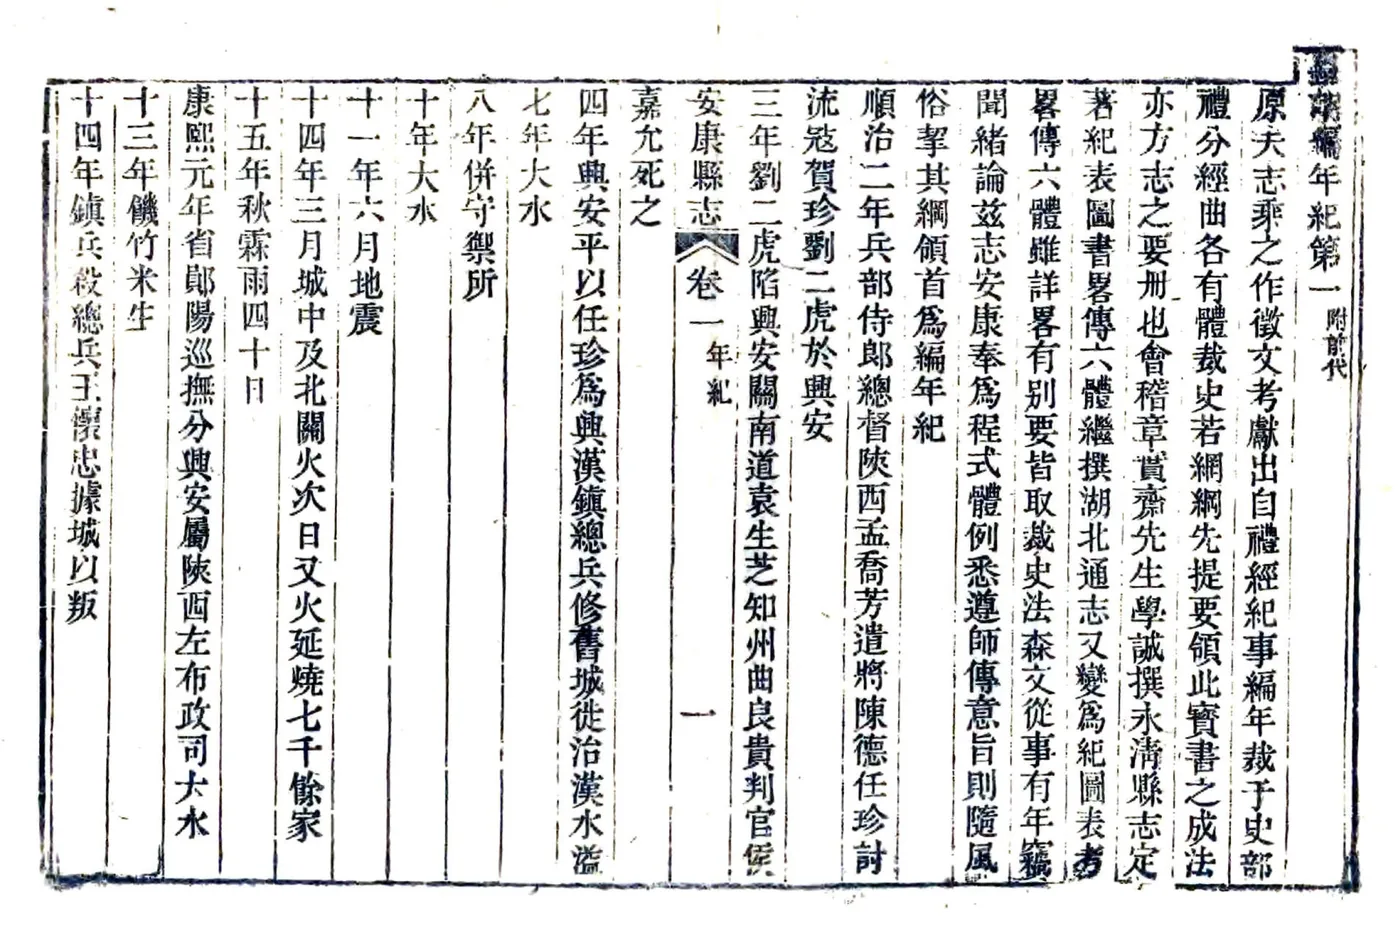 編年紀第一 附前代
原夫志乘之作徵文考獻出自禮經紀事編年裁于史部
禮分經曲各有體裁史若網綱先提要領此實書之成法
亦方志之要刑也會稽章實齋先生學誠撰永清縣志定
著紀表圖書畧傳六體繼撰湖北通志又變爲紀圖表考
畧傳六體雖詳畧有别要皆取裁史法森文從事有年竊
聞緒論兹志安康奉爲程式體例悉遵師傳意旨則隨風
俗挈其綱領首爲編年紀
順治二年兵部侍郎總督陜西孟喬芳遣將陳德任珍討
流寇賀珍劉二虎於興安
三年劉二虎陷興安關南道袁生芝知州曲良貴判官侯
安康縣志 卷一 年紀 一
嘉允死之
四年興安平以任珍爲興漢鎮總兵修舊城徙治漢水溢
七年大水
八年併守禦所
十年大水
十一年六月地震
十四年三月城中及北關火次日又火延燒七千餘家
十五年秋霖雨四十日
康熙元年省鄖陽巡撫分興安屬陜西左布政司大水
十三年饑竹米生
十四年鎮兵殺總兵王懷忠據城以叛